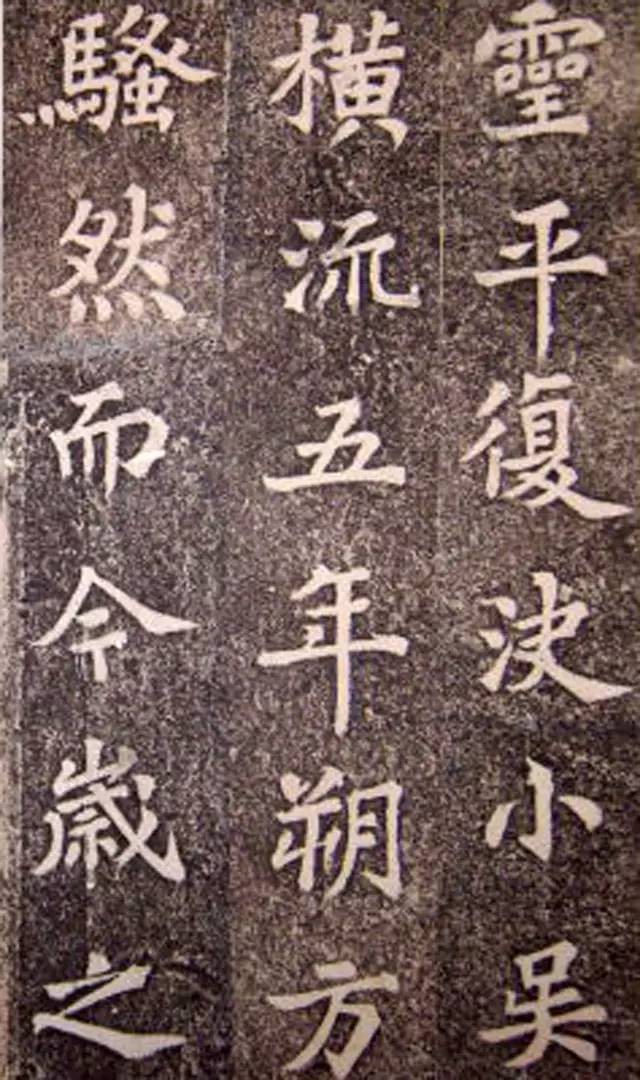 靈平復決小吳
橫流五年朔方
騷然而今歲之